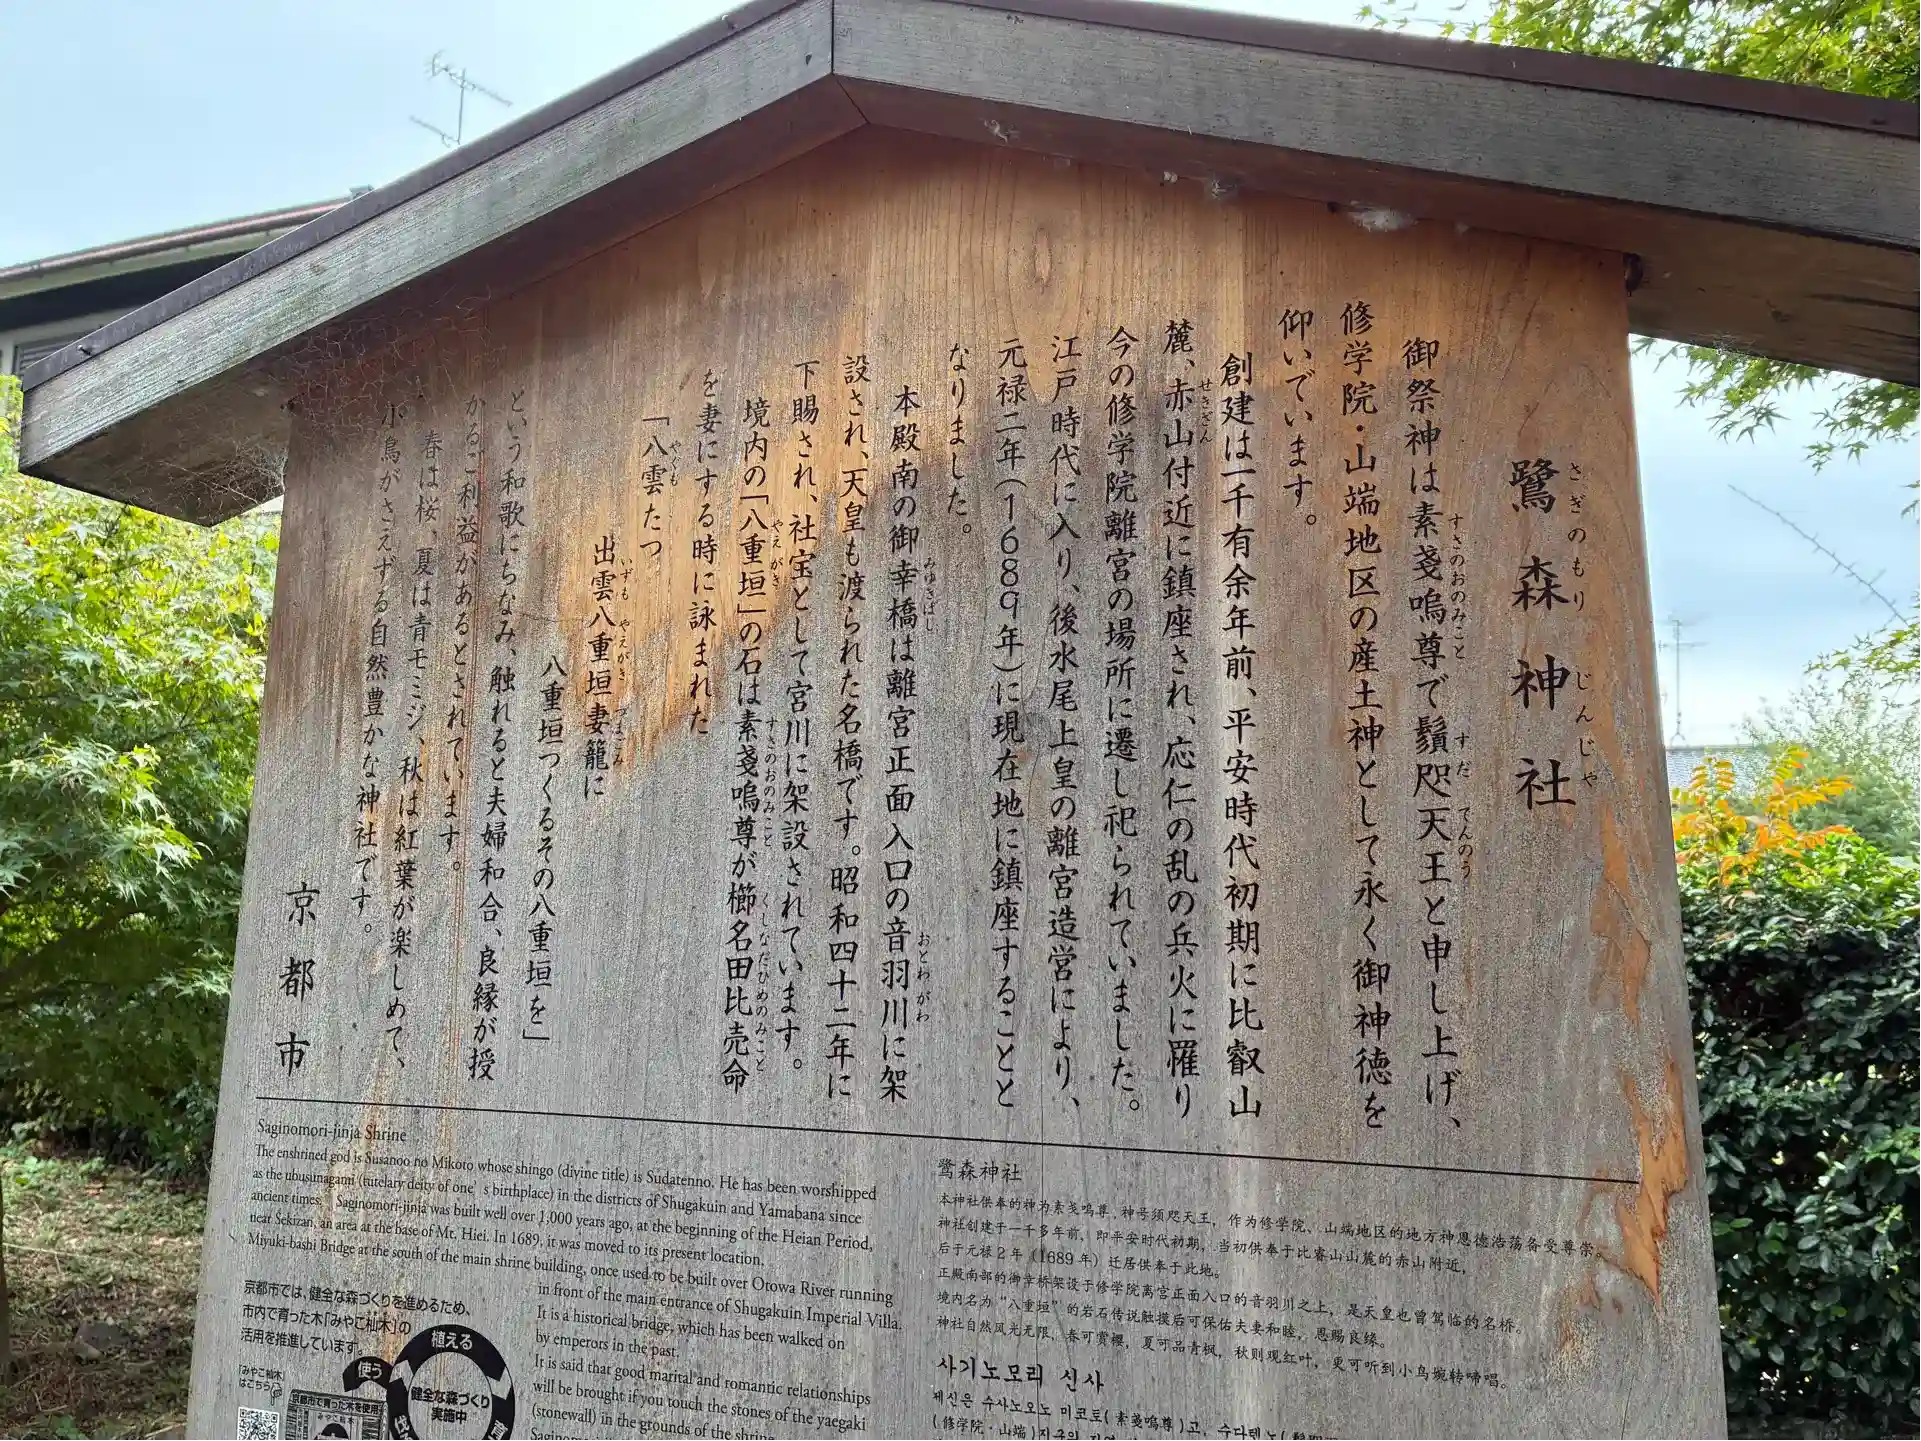 鷺森神社
さぎのもり じんじゃ
御祭神は素戔嗚尊で鬚咫天王と申し上げ、
すさのおのみこと すだ てんのう
修学院・山端地区の産土神として永く御神徳を
仰いでいます。
創建は一千有余年前、平安時代初期に比叡山
麓、赤山付近に鎮座され、応仁の乱の兵火に罹り
せきざん
今の修学院離宮の場所に遷し祀られていました。
江戸時代に入り、後水尾上皇の離宮造営により、
元禄二年(1689年)に現在地に鎮座することと
なりました。
本殿南の御幸橋は離宮正面入口の音羽川に架
みゆきばし おとわがわ
設され、天皇も渡られた名橋です。昭和四十二年に
下賜され、社宝として宮川に架設されています。
境内の「八重垣」の石は素戔嗚尊が櫛名田比売命
やえがき すさのおのみこと くしなだひめのみこと
を妻にする時に詠まれた
「八雲たつ
やくも
出雲八重垣妻籠に
いずも やえがき づまごみ
八重垣つくるその八重垣を」
という和歌にちなみ、触れると夫婦和合、良縁が授
かるご利益があるとされています。
春は桜、夏は青モミジ、秋は紅葉が楽しめて、
小鳥がさえずる自然豊かな神社です。
京都市
Saginomori-jinja Shrine
The enshrined god is Susanoo no Mikoto whose shingo (divine title) is Sudatenno. He has been worshipped
as the ubusunagami (tutelary deity of one's birthplace) in the districts of Shugakuin and Yamabana since
ancient times. Saginomori-jinja was built well over 1,000 years ago, at the beginning of the Heian Period,
near Sekizan, an area at the base of Mt. Hiei. In 1689, it was moved to its present location.
Miyuki-bashi Bridge at the south of the main shrine building, once used to be built over Otowa River running
in front of the main entrance of Shugakuin Imperial Villa.
It is a historical bridge, which has been walked on
by emperors in the past.
It is said that good marital and romantic relationships
will be brought if you touch the stones of the yaegaki
(stonewall) in the grounds of the shrine.
京都市では、健全な森づくりを進めるため、
市内で育った木「みやこ杣木」の
活用を推進しています。
「みやこ杣木」
はこちら
植える
使う
健全な森づくり
実施中
京都市で育った木を使用
みやこ杣木
鹭森神社
本神社供奉的神为素戔呜尊，神号须咫天王，作为修学院、山端地区的地方神恩德浩荡备受尊崇。
神社创建于一千多年前，即平安时代初期，当初供奉于比睿山山麓的赤山附近，
后于元禄2年（1689年）迁居供奉于此地。
正殿南部的御幸桥架设于修学院离宫正面入口的音羽川之上，是天皇也曾驾临的名桥。
境内名为“八重垣”的岩石传说触摸后可保佑夫妻和睦，恩赐良缘。
神社自然风光无限，春可赏樱，夏可品青枫，秋则观红叶，更可听到小鸟婉转啼唱。
사기노모리 신사
제신은 수사노오노 미코토(素戔嗚尊)고, 수다텐노
(修学院・山端)